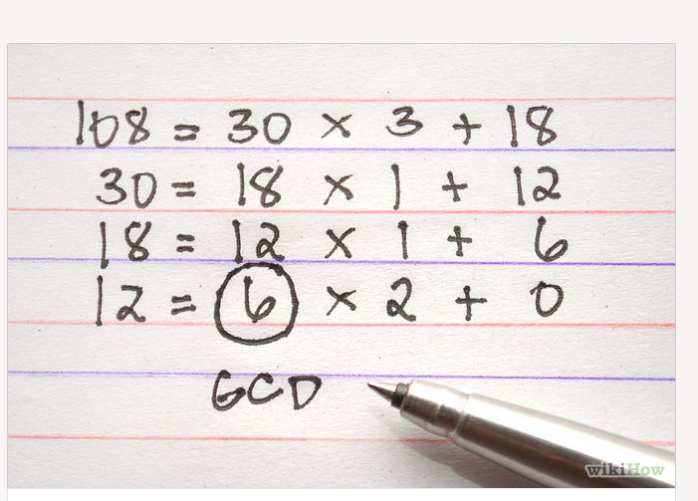 108 = 30 × 3 + 18
30 = 18 × 1 + 12
18 = 12 × 1 + 6
12 = 6 × 2 + 0
GCD
wikiHow